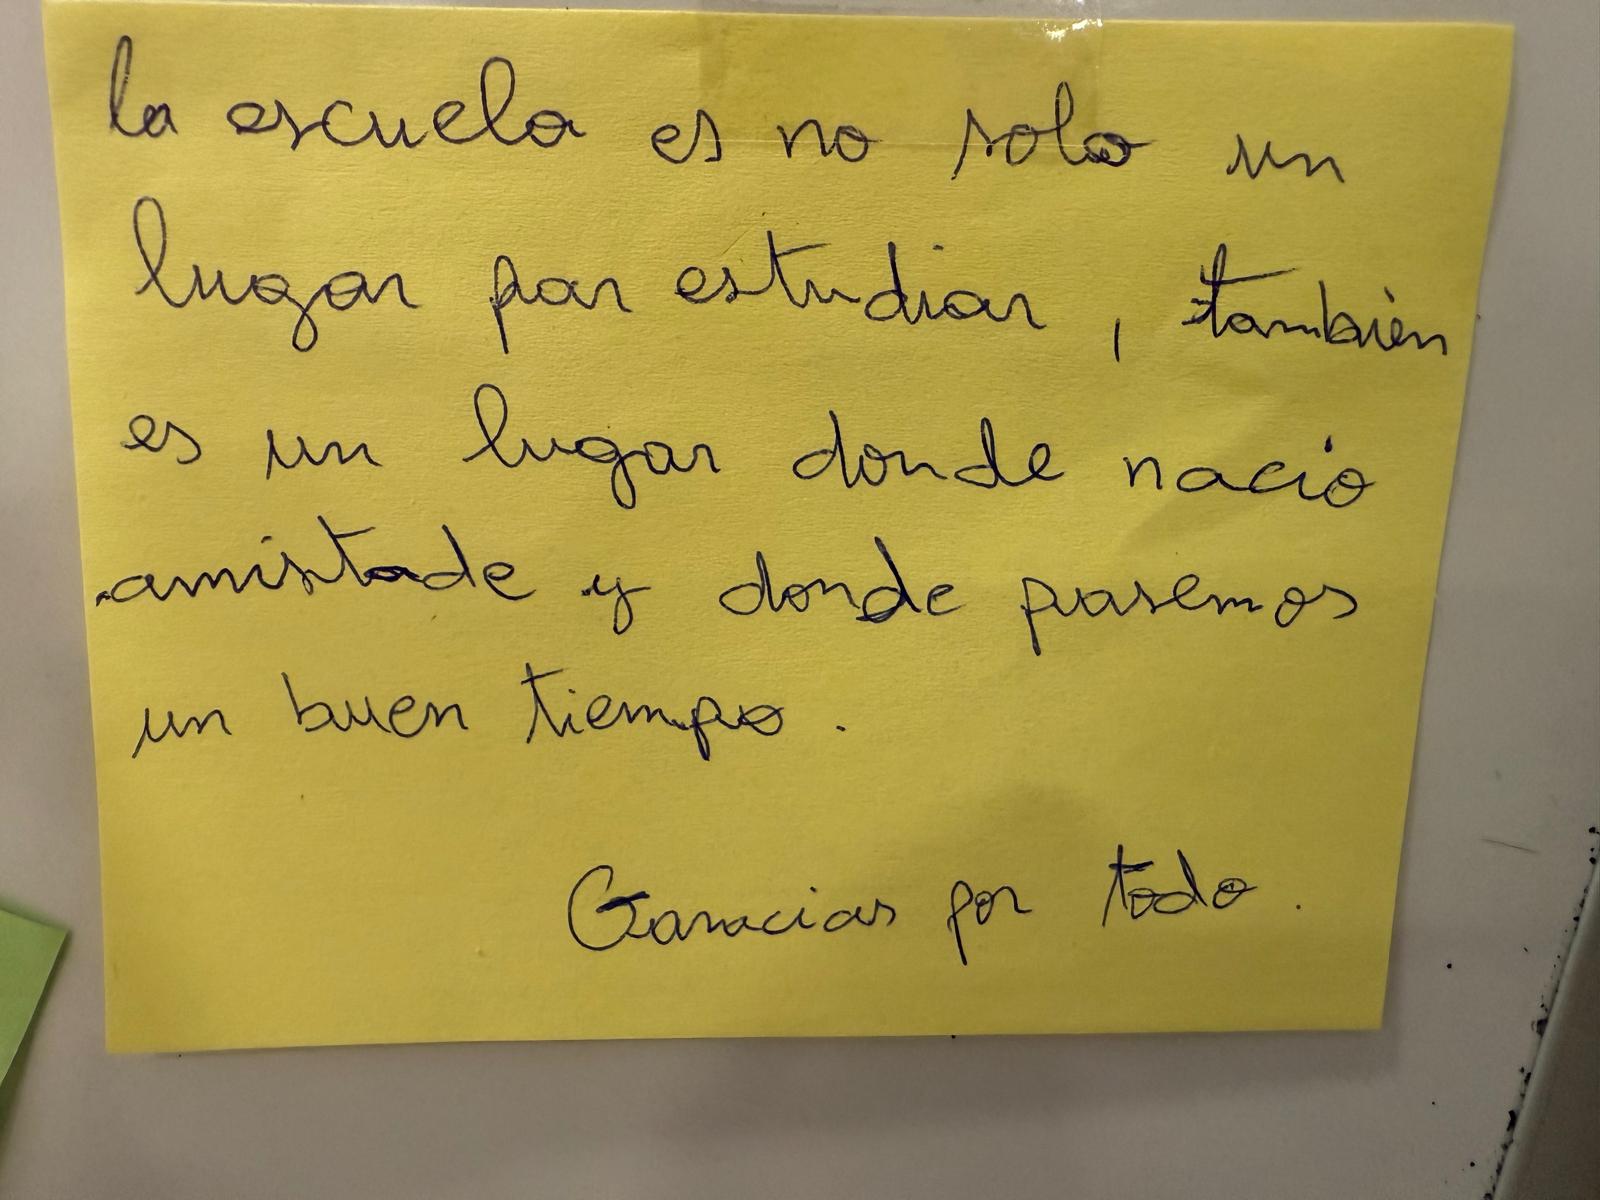 la escuela es no solo un
lugar par estudiar, también
es un lugar donde nació
amistade y donde pasemos
un buen tiempo.
Garacias por todo.